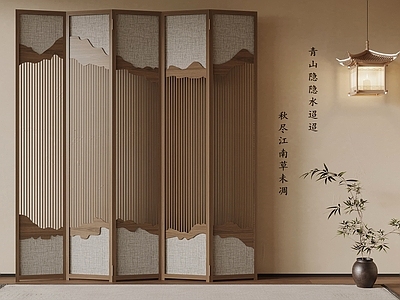 青山隐隐水迢迢
秋尽江南草未凋